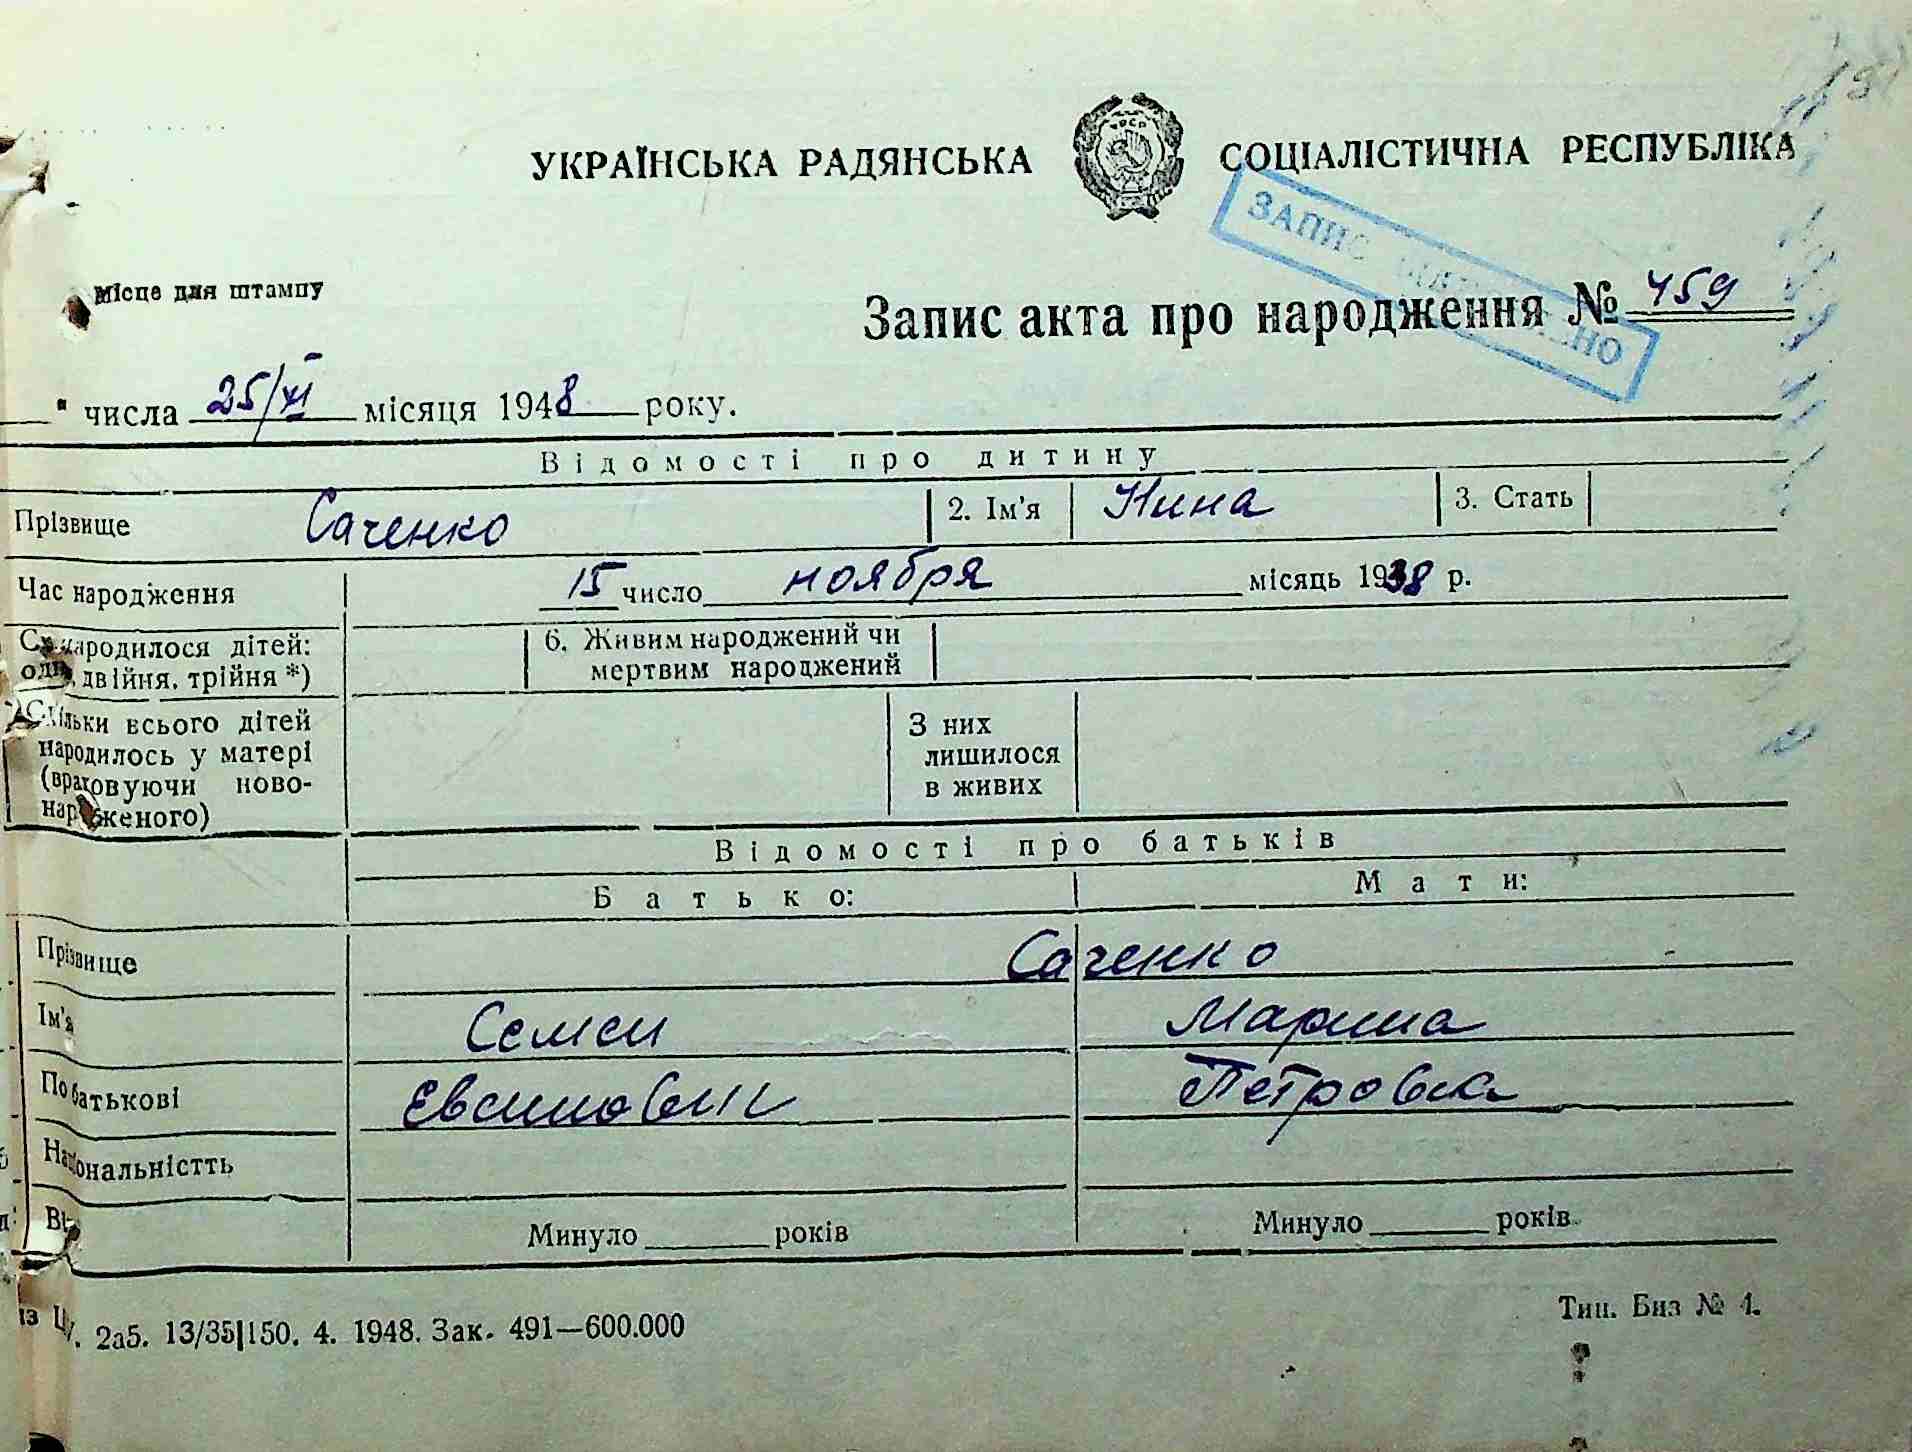 УКРАЇНСЬКА РАДЯНСЬКА СОЦІАЛІСТИЧНА РЕСПУБЛІКА
ЗАПИС
Місце для штампу
Запис акта про народження № 459
" числа 25/XI місяця 1948 року.
Відомості про дитину
Прізвище Саченко 2. Ім'я Нина 3. Стать
Час народження 15 число ноября місяць 1938 р.
народилося дітей: 6. Живим народжений чи
двійня, трійня *) мертвим народжений
Скільки всього дітей З них
народилось у матері лишилося
(враховуючи ново- в живих
народженого)
Відомості про батьків
Батько: Мати:
Прізвище Саченко
Ім'я Семен Марина
По батькові Петровна
Національністть
Минуло років Минуло років
2а5. 13/35|150. 4. 1948. Зак. 491—600.000 Тип. Биз № 1.